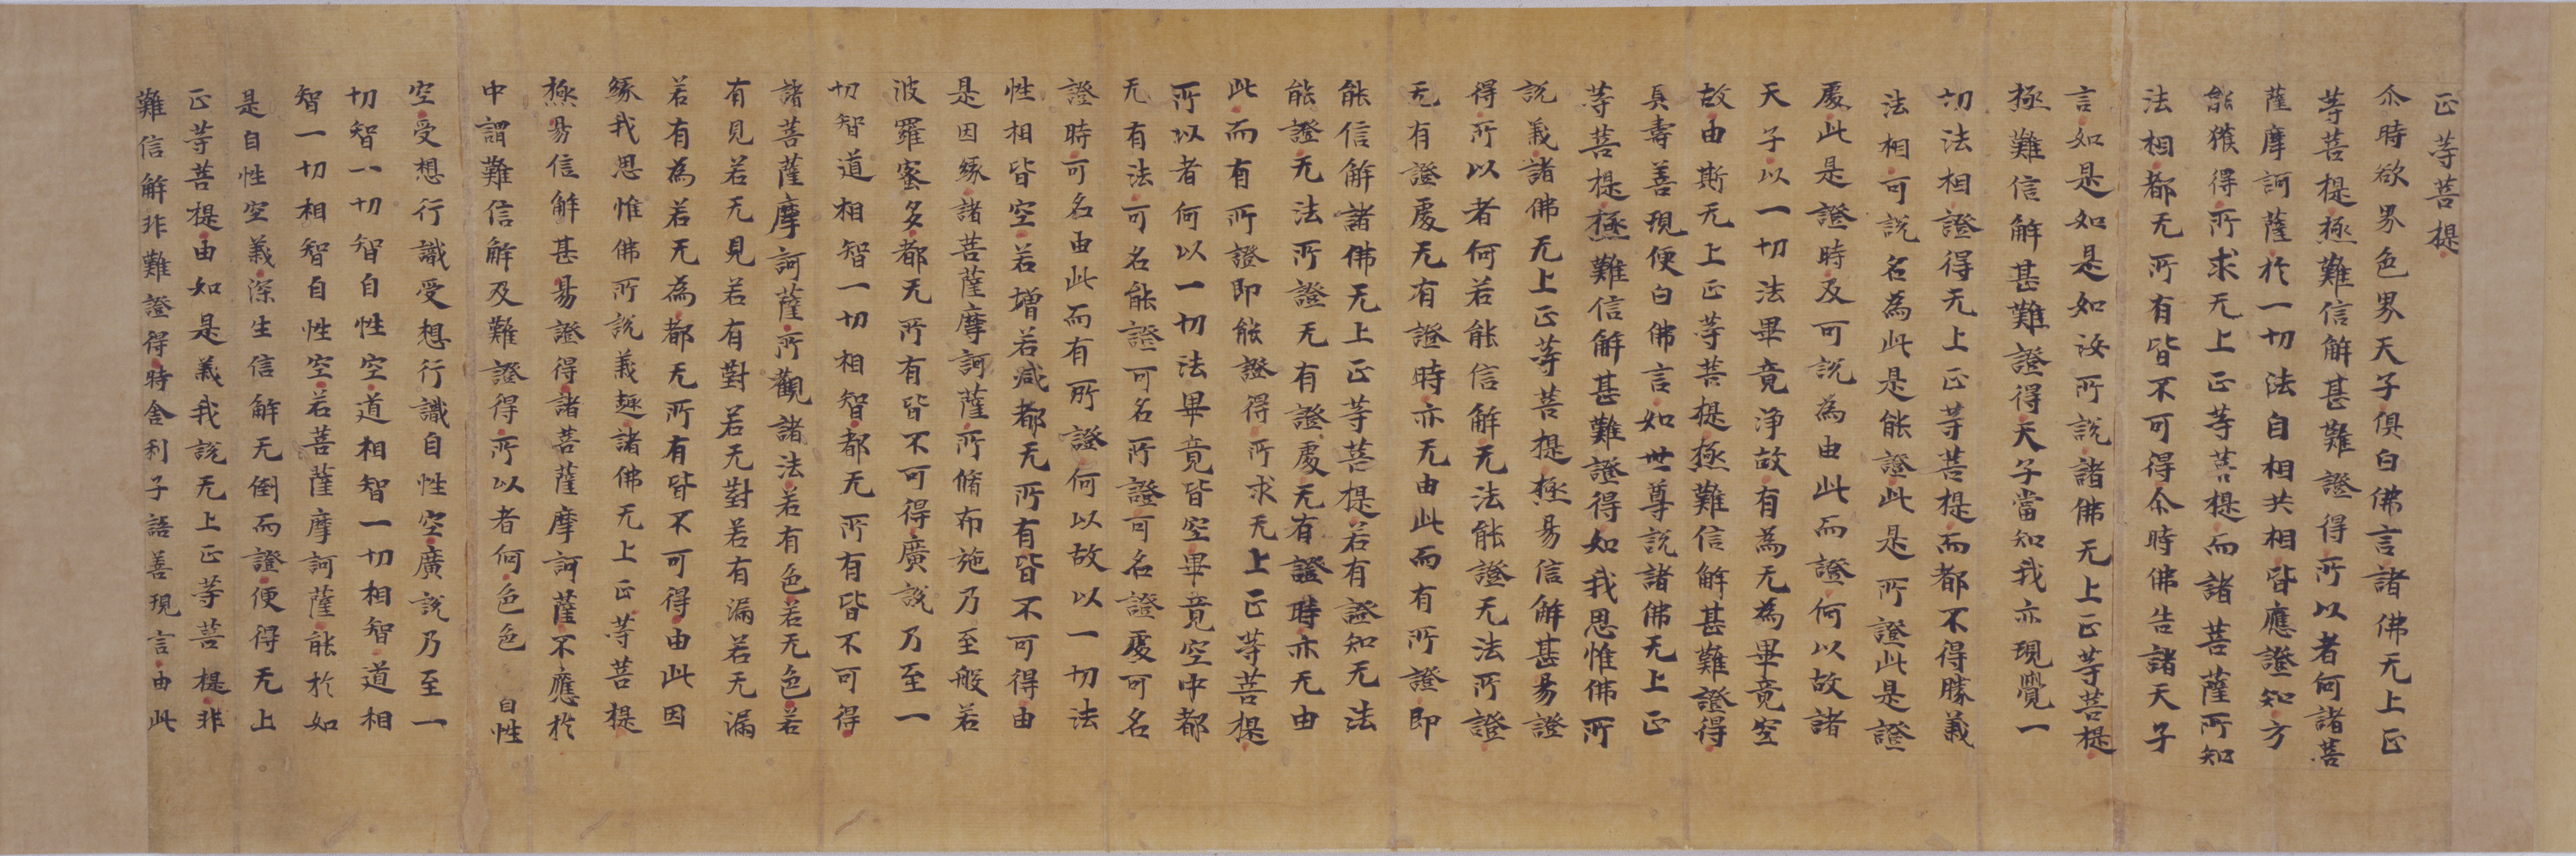 正等菩提
尒時欲界色界天子俱白佛言諸佛无上正
等菩提極難信解甚難證得所以者何諸菩
薩摩訶薩於一切法自相共相皆應證知方
能獲得所求无上正等菩提而諸菩薩所知
法相都无所有皆不可得尒時佛告諸天子
言如是如是如汝所說諸佛无上正等菩提
極難信解甚難證得天子當知我亦現覺一
切法相證得无上正等菩提而都不得勝義
法相可說名為此是能證此是所證此是證
處此是證時及可說為由此而證何以故諸
天子以一切法畢竟淨故有為无為畢竟空
故由斯无上正等菩提極難信解甚難證得
具壽善現便白佛言如世尊說諸佛无上正
等菩提極難信解甚難證得如我思惟佛所
說義諸佛无上正等菩提極易信解甚易證
得所以者何若能信解无法能證无法所證
无有證處无有證時亦无由此而有所證即
能信解諸佛无上正等菩提若有證知无法
能證无法所證无有證處无有證時亦无由
此而有所證即能證得所求无上正等菩提
所以者何以一切法畢竟皆空畢竟空中都
无有法可名能證可名所證可名證處可名
證時可名由此而有所證何以故以一切法
性相皆空若增若減都无所有皆不可得由
是因緣諸菩薩摩訶薩所脩布施乃至般若
波羅蜜多都无所有皆不可得廣說乃至一
切智道相智一切相智都无所有皆不可得
諸菩薩摩訶薩所觀諸法若有色若无色若
有見若无見若有對若无對若有漏若无漏
若有為若无為都无所有皆不可得由此因
緣我思惟佛所說義趣諸佛无上正等菩提
極易信解甚易證得諸菩薩摩訶薩不應於
中謂難信解及難證得所以者何色色自性
空受想行識受想行識自性空廣說乃至一
切智一切智自性空道相智一切相智道相
智一切相智自性空若菩薩摩訶薩能於如
是自性空義深生信解无倒而證便得无上
正等菩提由如是義我說无上正等菩提非
難信解非難證得時舍利子語善現言由此